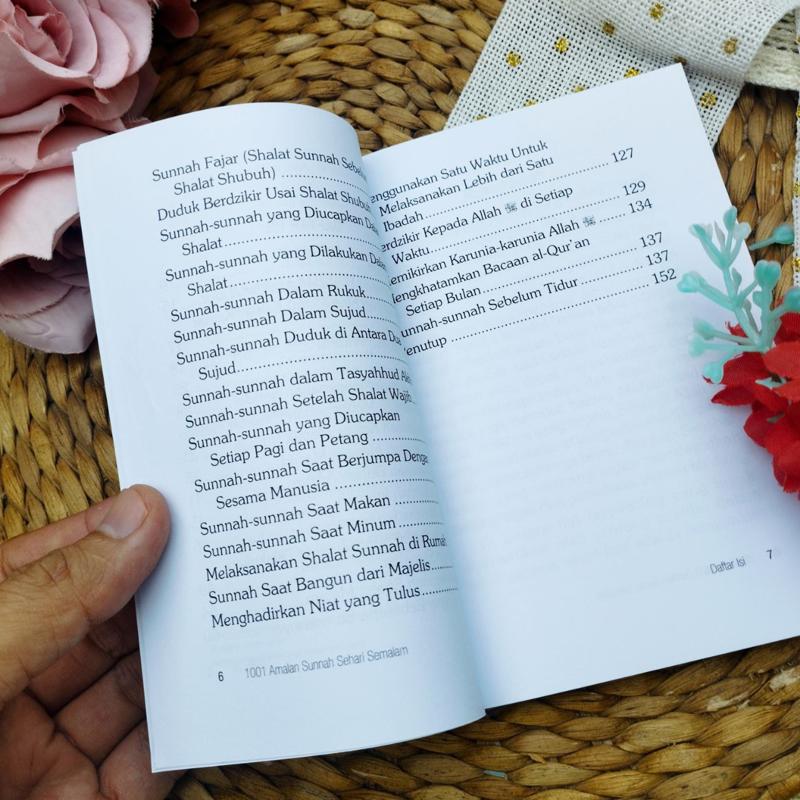 Sunnah Fajar (Shalat Sunnah
Shalat Shubuh) ..................
Duduk Berdzikir Usai Shalat
Sunnah-sunnah yang Diucapkan
Shalat..........................
Sunnah-sunnah yang Dilakukan
Shalat..........................
Sunnah-sunnah Dalam Rukuk.......
Sunnah-sunnah Dalam Sujud.......
Sunnah-sunnah Duduk di Antara
Sujud...........................
Sunnah-sunnah dalam Tasyahhud
Sunnah-sunnah Setelah Shalat
Sunnah-sunnah yang Diucapkan
Setiap Pagi dan Petang ..........
Sunnah-sunnah Saat Berjumpa
Sesama Manusia ..................
Sunnah-sunnah Saat Makan .........
Sunnah-sunnah Saat Minum .........
Melaksanakan Shalat Sunnah di
Sunnah Saat Bangun dari Majelis......
Menghadirkan Niat yang Tulus.........
6 1001 Amalan Sunnah Sehari Semalam
Satu Waktu Untuk
Melaksanakan Lebih dari Satu
Ibadah.............................. 127
Kepada Allah ﷻ di Setiap
Waktu............................... 129
Karunia-karunia Allah ﷻ ...... 134
Bacaan al-Qur'an
Setiap Bulan........................ 137
Sebelum Tidur................ 137
.............................. 152
Daftar Isi 7